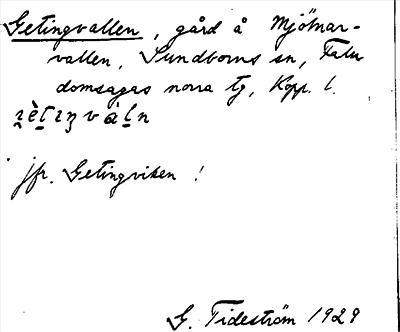 Getingvallen, gård å Mjölnar-
vallen, Sundborns sn, Falu
domsagas norra tg, Kopp. l.
jfr. Getingviken !
G. Tideström 1929